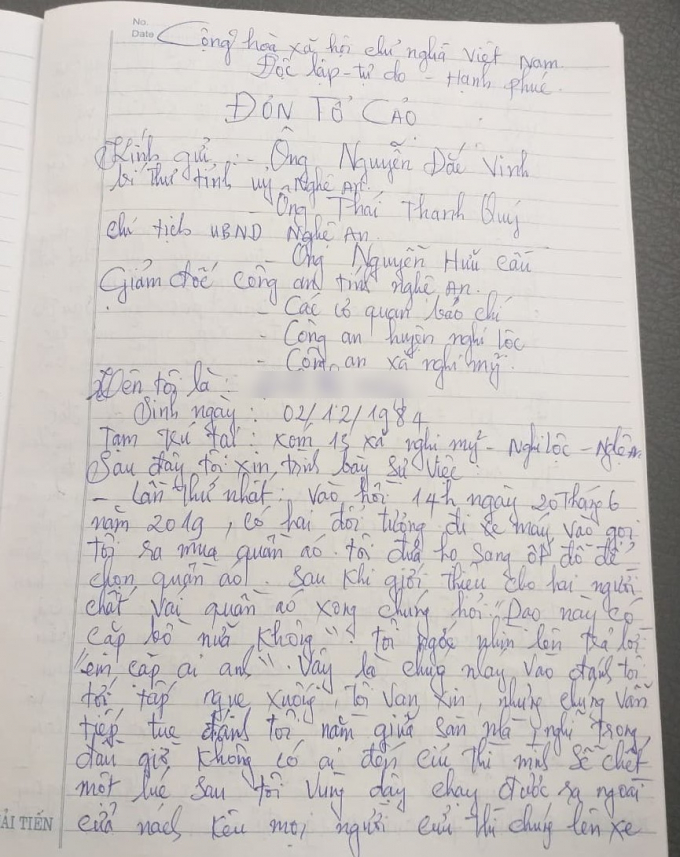 No.
Date
Cộng hoà xã hội chủ nghĩa Việt Nam.
Độc lập - tự do - Hạnh phúc.
ĐƠN TỐ CÁO
Kính gửi :- Ông Nguyễn Đắc Vinh
bí thư tỉnh uỷ Nghệ An.
- Ông Thái Thanh Quý
chủ tịch UBND Nghệ An.
- Ông Nguyễn Hữu Cầu
Giám đốc công an tỉnh nghệ An.
- Các cơ quan báo chí
- Công an huyện nghi lộc
- Công an xã nghi mỹ.
Tên tôi là :
Sinh ngày : 02/12/1984
Tạm trú tại : xóm 15 xã nghi mỹ - Nghi Lộc - Nghệ An
Sau đây tôi xin trình bày sự việc
- Lần thứ nhất: vào hồi 14h ngày 20 tháng 6
năm 2019, có hai đối tượng đi xe máy vào gọi
tôi ra mua quần áo. tôi đưa họ sang ốt đồ để
chọn quần áo. Sau khi giới thiệu cho hai người
chất vải quần áo xong chúng hỏi "Dạo này có
cặp bồ nữa không" tôi ngước nhìn lên trả lời
"em cặp ai anh". Vậy là chúng nhảy vào đánh tôi
tới tấp ngục xuống, tôi van xin, nhưng chúng vẫn
tiếp tục đánh tôi nằm giữa sàn nhà, nghĩ trong
đầu giờ không có ai đến cứu thì mình sẽ chết
một lúc sau tôi vùng dậy chạy được ra ngoài
cửa nách kêu mọi người cứu thì chúng lên xe
ẢI TIẾN